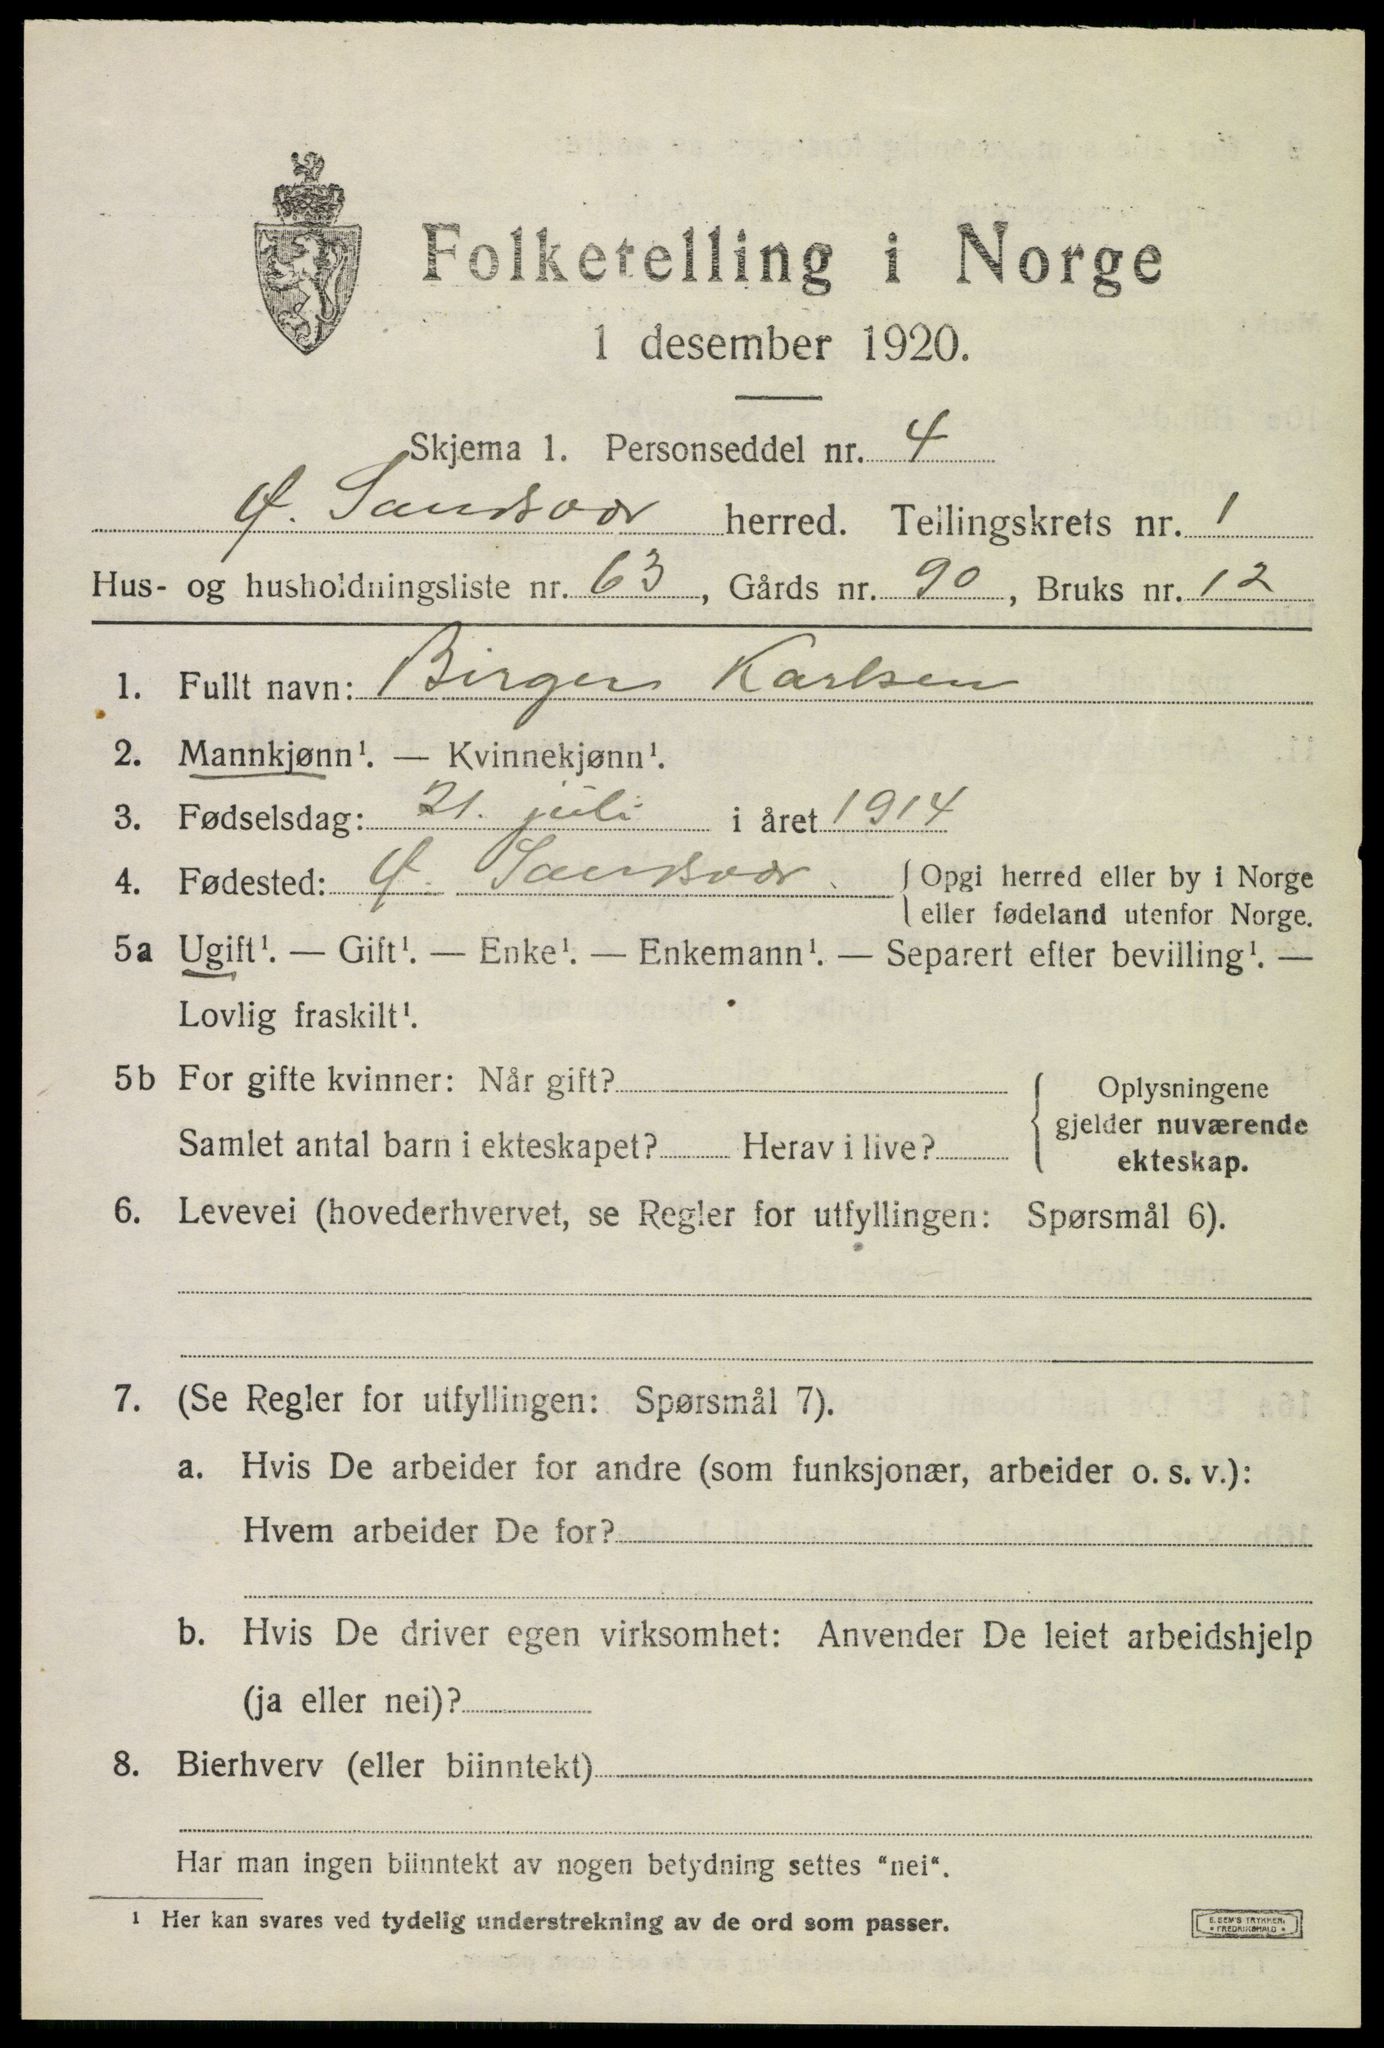 Folketelling i Norge
1 desember 1920.
Skjema 1. Personseddel nr. 4
Ø. Sandsvær herred. Tellingskrets nr. 1
Hus- og husholdningsliste nr. 63, Gårds nr. 90, Bruks nr. 12
1. Fullt navn: Birger Karlsen
2. Mannkjønn¹. — Kvinnekjønn¹.
3. Fødselsdag: 21. juli i året 1914
4. Fødested: Ø. Sandsvær. { Opgi herred eller by i Norge
eller fødeland utenfor Norge.
5a Ugift¹. — Gift¹. — Enke¹. — Enkemann¹. — Separert efter bevilling¹. —
Lovlig fraskilt¹.
5b For gifte kvinner: Når gift?
Samlet antal barn i ekteskapet? Herav i live?
{ Oplysningene
gjelder nuværende
ekteskap.
6. Levevei (hovederhvervet, se Regler for utfyllingen: Spørsmål 6).
7. (Se Regler for utfyllingen: Spørsmål 7).
a. Hvis De arbeider for andre (som funksjonær, arbeider o. s. v.):
Hvem arbeider De for?
b. Hvis De driver egen virksomhet: Anvender De leiet arbeidshjelp
(ja eller nei)?
8. Bierhverv (eller biinntekt)
Har man ingen biinntekt av nogen betydning settes "nei".
¹ Her kan svares ved tydelig understrekning av de ord som passer.
E. SEM'S TRYKKERI
* FREDRIKSHALD *